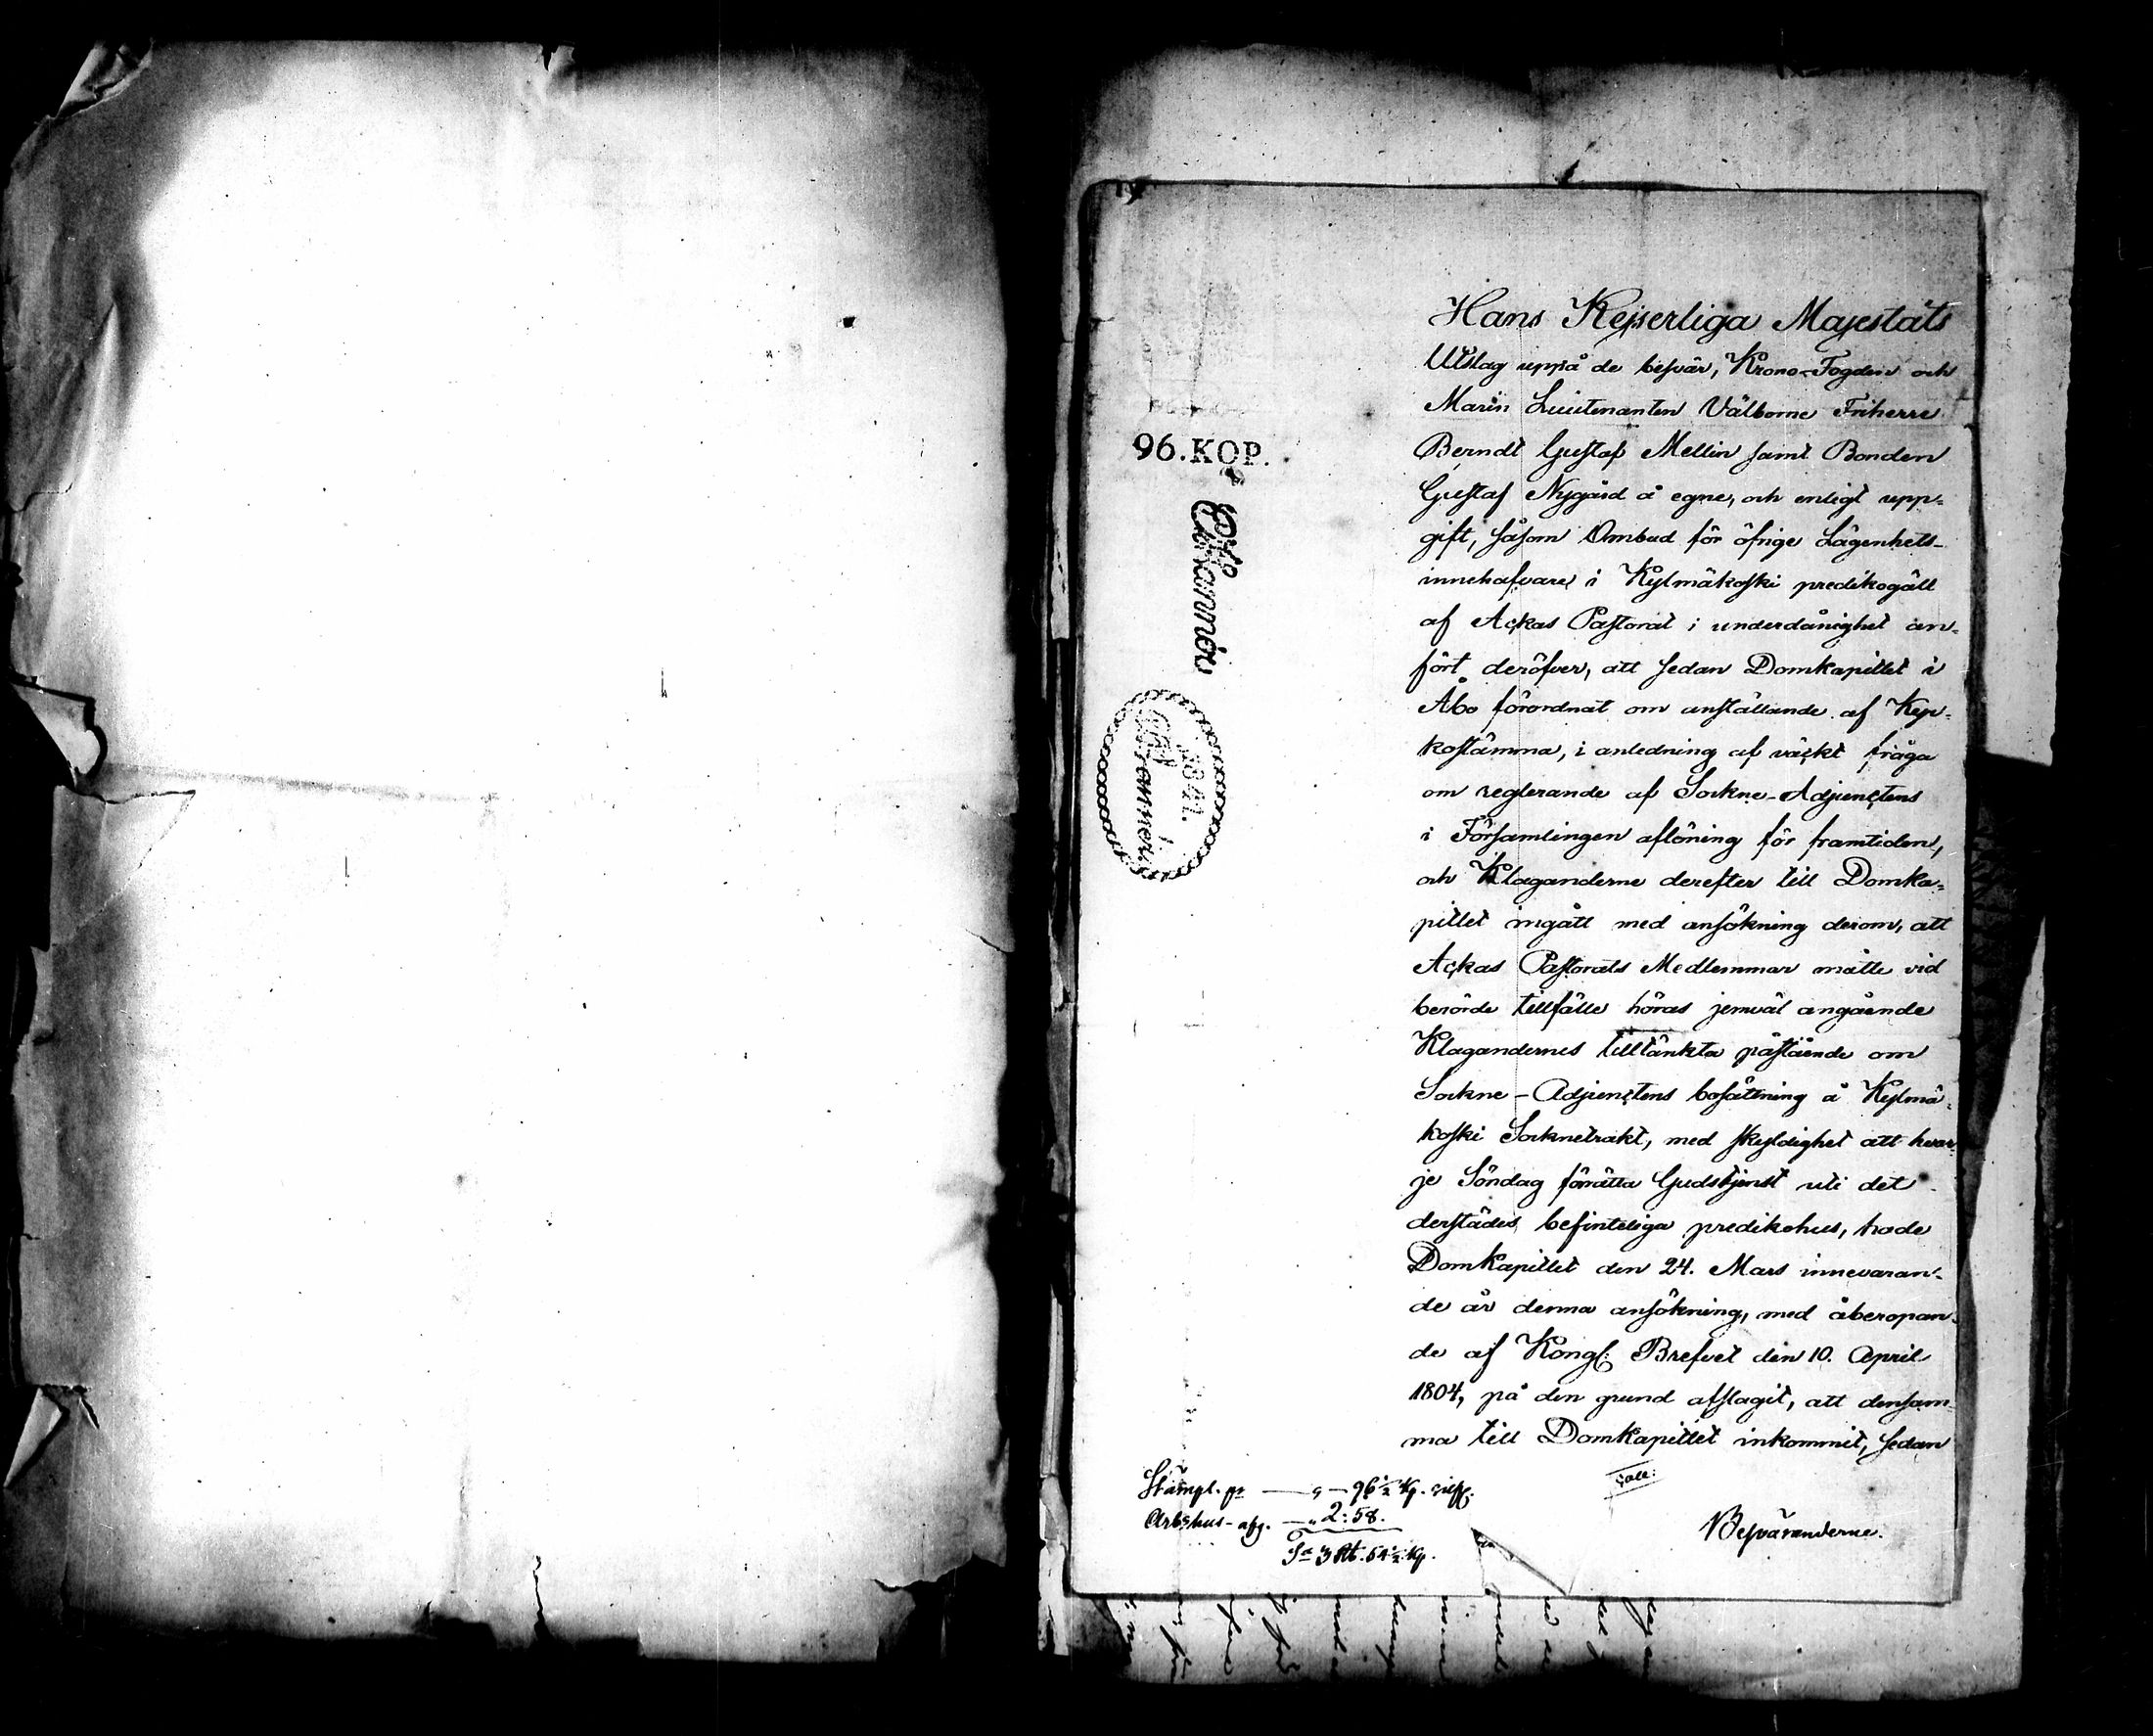 Hans Kejserliga Majestäts
Utslag uppå de besvär, Krono-Fogden och
Marin Lieutenanten Välborne Friherre
Berndt Gustaf Mellin samt Bonden
Gustaf Nygård å egne, och enligt upp-
gift, såsom Ombud för öfrige Lägenhets-
innehafvare i Kylmäkoski predikogäll
af Ackas Pastorat i underdånighet an-
fört deröfver, att sedan Domkapitlet i
Åbo förordnat om anställande af Kyr-
kostämma, i anledning af väckt fråga
om reglerande af Sockne-Adjunctens
i Församlingen aflöning för framtiden,
och Klaganderne derefter till Domka-
pitlet ingått med ansökning derom, att
Ackas Pastorats Medlemmar måtte vid
berörde tillfälle höras jemväl angående
Klagandernes tilltänkta påstående om
Sockne-Adjunctens bosättning å Kylmä-
koski Socknetrakt, med skyldighet att hvar-
je Söndag förrätta Gudstjenst uti det
derstädes befinteliga predikohus, hade
Domkapitlet den 24. Mars innevaran-
de år denna ansökning, med åberopan-
de af Kongl. Brefvet den 10. April
1804, på den grund afslagit, att densam-
ma till Domkapitlet inkommit, sedan
96. KOP.
1841.
Stämpl. pr — " — 96 1/2 Kp. silf.
Arbshus-afg. — " 2: 58.
Sa 3 Rb. 54 1/2 Kp.
Besväranderne.